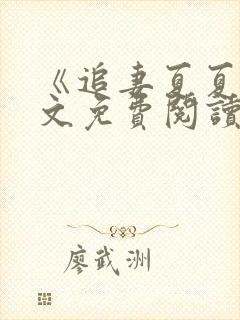 《追妻夏夏
文免費閱讀
廖武洲